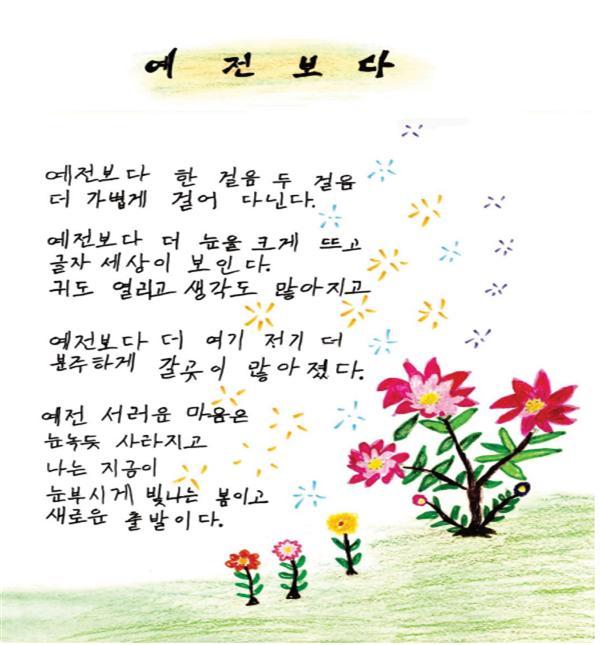 예전보다
예전보다 한 걸음 두 걸음
더 가볍게 걸어 다닌다.
예전보다 더 눈을 크게 뜨고
글자 세상이 보인다.
귀도 열리고 생각도 많아지고
예전보다 더 여기 저기 더
분주하게 갈곳이 많아졌다.
예전 서러운 마음은
눈녹듯 사라지고
나는 지금이
눈부시게 빛나는 봄이고
새로운 출발이다.